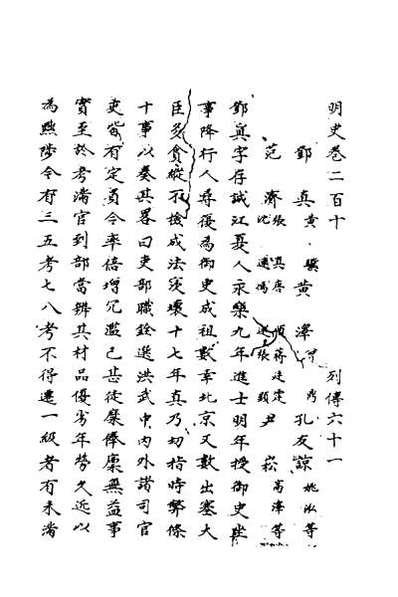 明史卷二百十 列傳六十一
鄧真 黃驥 黃澤 孔友諒
范濟 尹崧
鄧真字存誠江夏人永樂九年進士明年授御史坐
事降行人尋復為御史成祖數幸北京又數出塞大
臣多貪縱不檢成法寖壞十七年真乃切指時弊條
十事以奏其畧曰吏部職銓選洪武中內外諸司官
吏皆有定員今率倍增冗濫已甚徒縻俸廩無益事
實至於考滿官到部當辨其材品優劣年勞久近以
為黜陟今有三五考七八考不得遷一級者有未滿